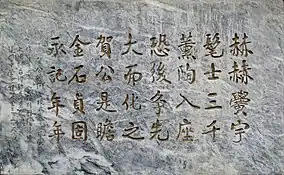 赫赫黌宇
髦士三千
薰陶入座
恐後争先
大而化之
賀公是瞻
金石貞固
永記年年